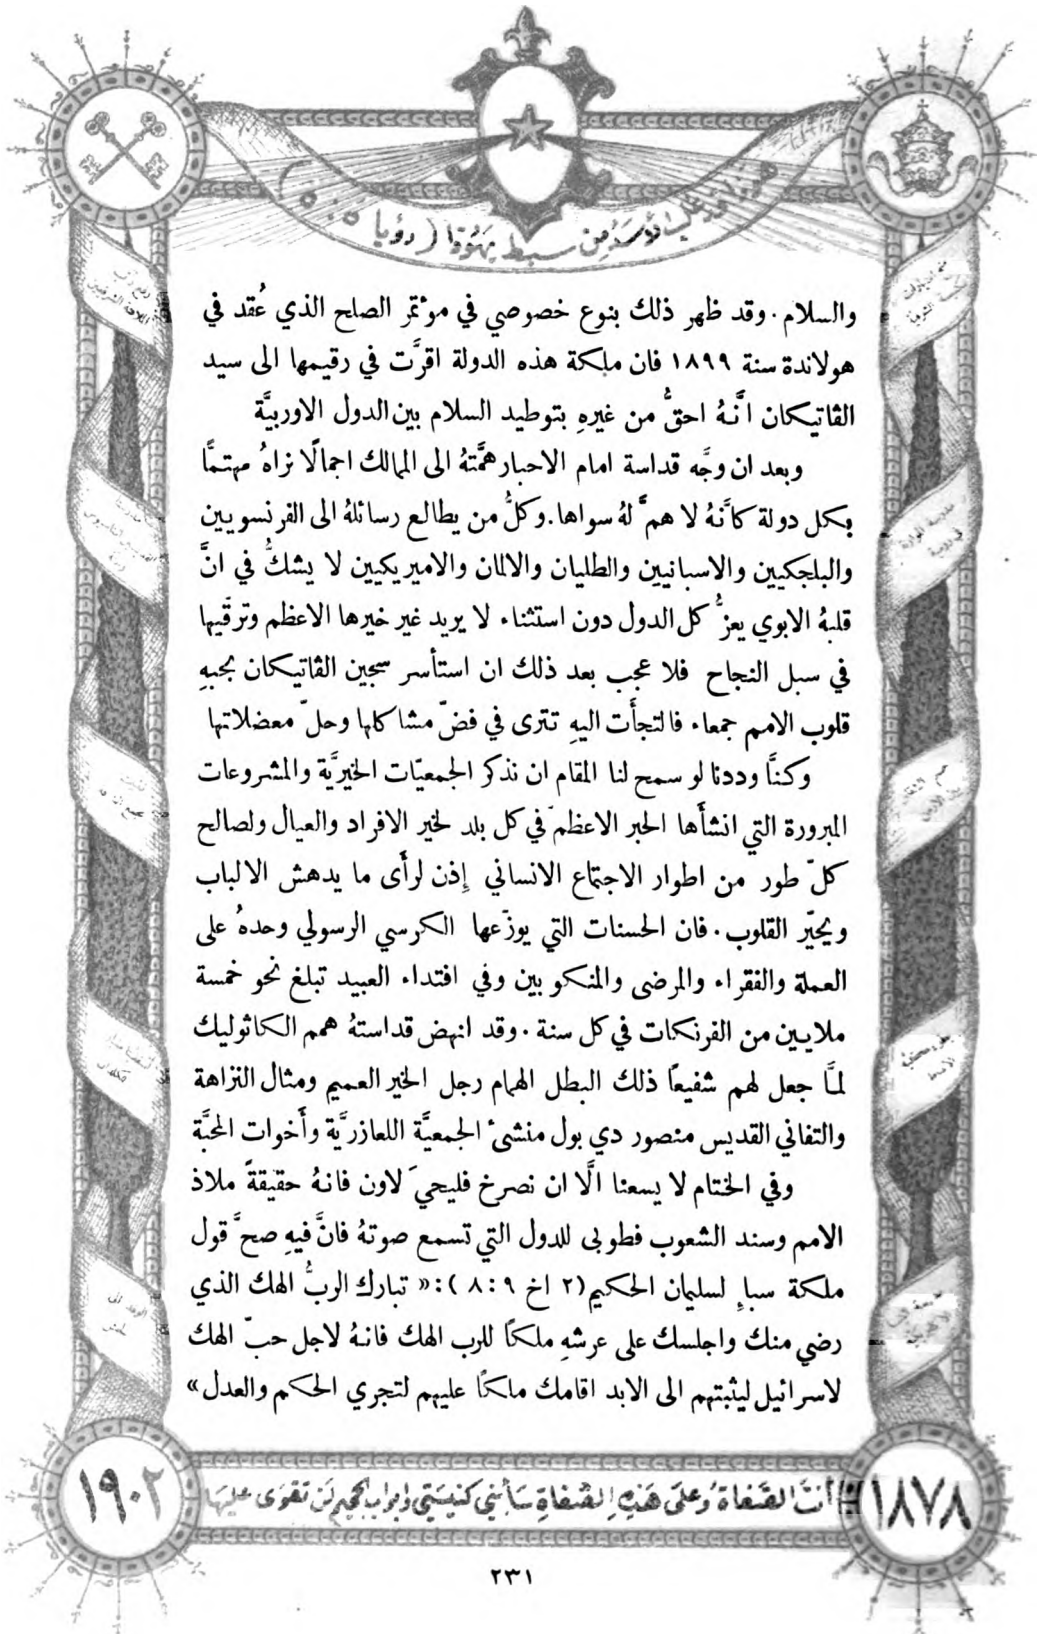 هوذا قد غلب الأسد من سبط يهوذا (رؤيا ٥:٥)
والسلام. وقد ظهر ذلك بنوع خصوصي في موٴتمر الصلح الذي عُقد في
هولاندة سنة ١٨٩٩ فان ملكة هذه الدولة اقرَّت في رقيمها الى سيد
الڤاتيكان انَّهُ احقُّ من غيرهِ بتوطيد السلام بين الدول الاوربيَّة
وبعد ان وجَّه قداسة امام الاحبار همَّتهُ الى الممالك اجمالًا نراهُ مهتمًّا
بكل دولة كانَّهُ لا همَّ لهُ سواها. وكلُّ من يطالع رسائلهُ الى الفرنسويين
والبلجكيين والاسبانيين والطليان والالمان والاميريكيين لا يشكُّ في انَّ
قلبهُ الابوي يعزُّ كل الدول دون استثناء لا يريد غير خيرها الاعظم وترقّيها
في سبل النجاح فلا عجب بعد ذلك ان استأسر سجين الڤاتيكان بحبهِ
قلوب الامم جمعاء فالتجأَت اليهِ تترى في فضّ مشاكلها وحلّ معضلاتها
وكنَّا وددنا لو سمح لنا المقام ان نذكر الجمعيّات الخيريَّة والمشروعات
المبرورة التي انشأَها الحبر الاعظم في كل بلد لخير الافراد والعيال ولصالح
كلّ طور من اطوار الاجتماع الانساني إذن لرأَى ما يدهش الالباب
ويحيّر القلوب. فان الحسنات التي يوزّعها الكرسي الرسولي وحدهُ على
العملة والفقراء والمرضى والمنكوبين وفي افتداء العبيد تبلغ نحو خمسة
ملايين من الفرنكات في كل سنة. وقد انهض قداستهُ همم الكاثوليك
لمَّا جعل لهم شفيعًا ذلك البطل الهمام رجل الخير العميم ومثال النزاهة
والتفاني القديس منصور دي بول منشئ الجمعيَّة اللعازريَّة وأَخوات المحبَّة
وفي الختام لا يسعنا الَّا ان نصرخ فليحيَ لاون فانهُ حقيقةً ملاذ
الامم وسند الشعوب فطوبى للدول التي تسمع صوتهُ فانَّ فيهِ صحَّ قول
ملكة سبإٍ لسليمان الحكيم (٢ اخ ٩:٨): «تبارك الربُّ الهك الذي
رضي منك واجلسك على عرشهِ ملكًا للرب الهك فانهُ لاجل حبّ الهك
لاسرائيل ليثبتهم الى الابد اقامك ملكًا عليهم لتجري الحكم والعدل»
١٨٧٨
أنتَ الصَّفاة وعلى هذهِ الصَّفاةِ سَأبني كنيسَتي وابواب الجحيم لن تقوَى عليها
١٩٠٢
٢٣١